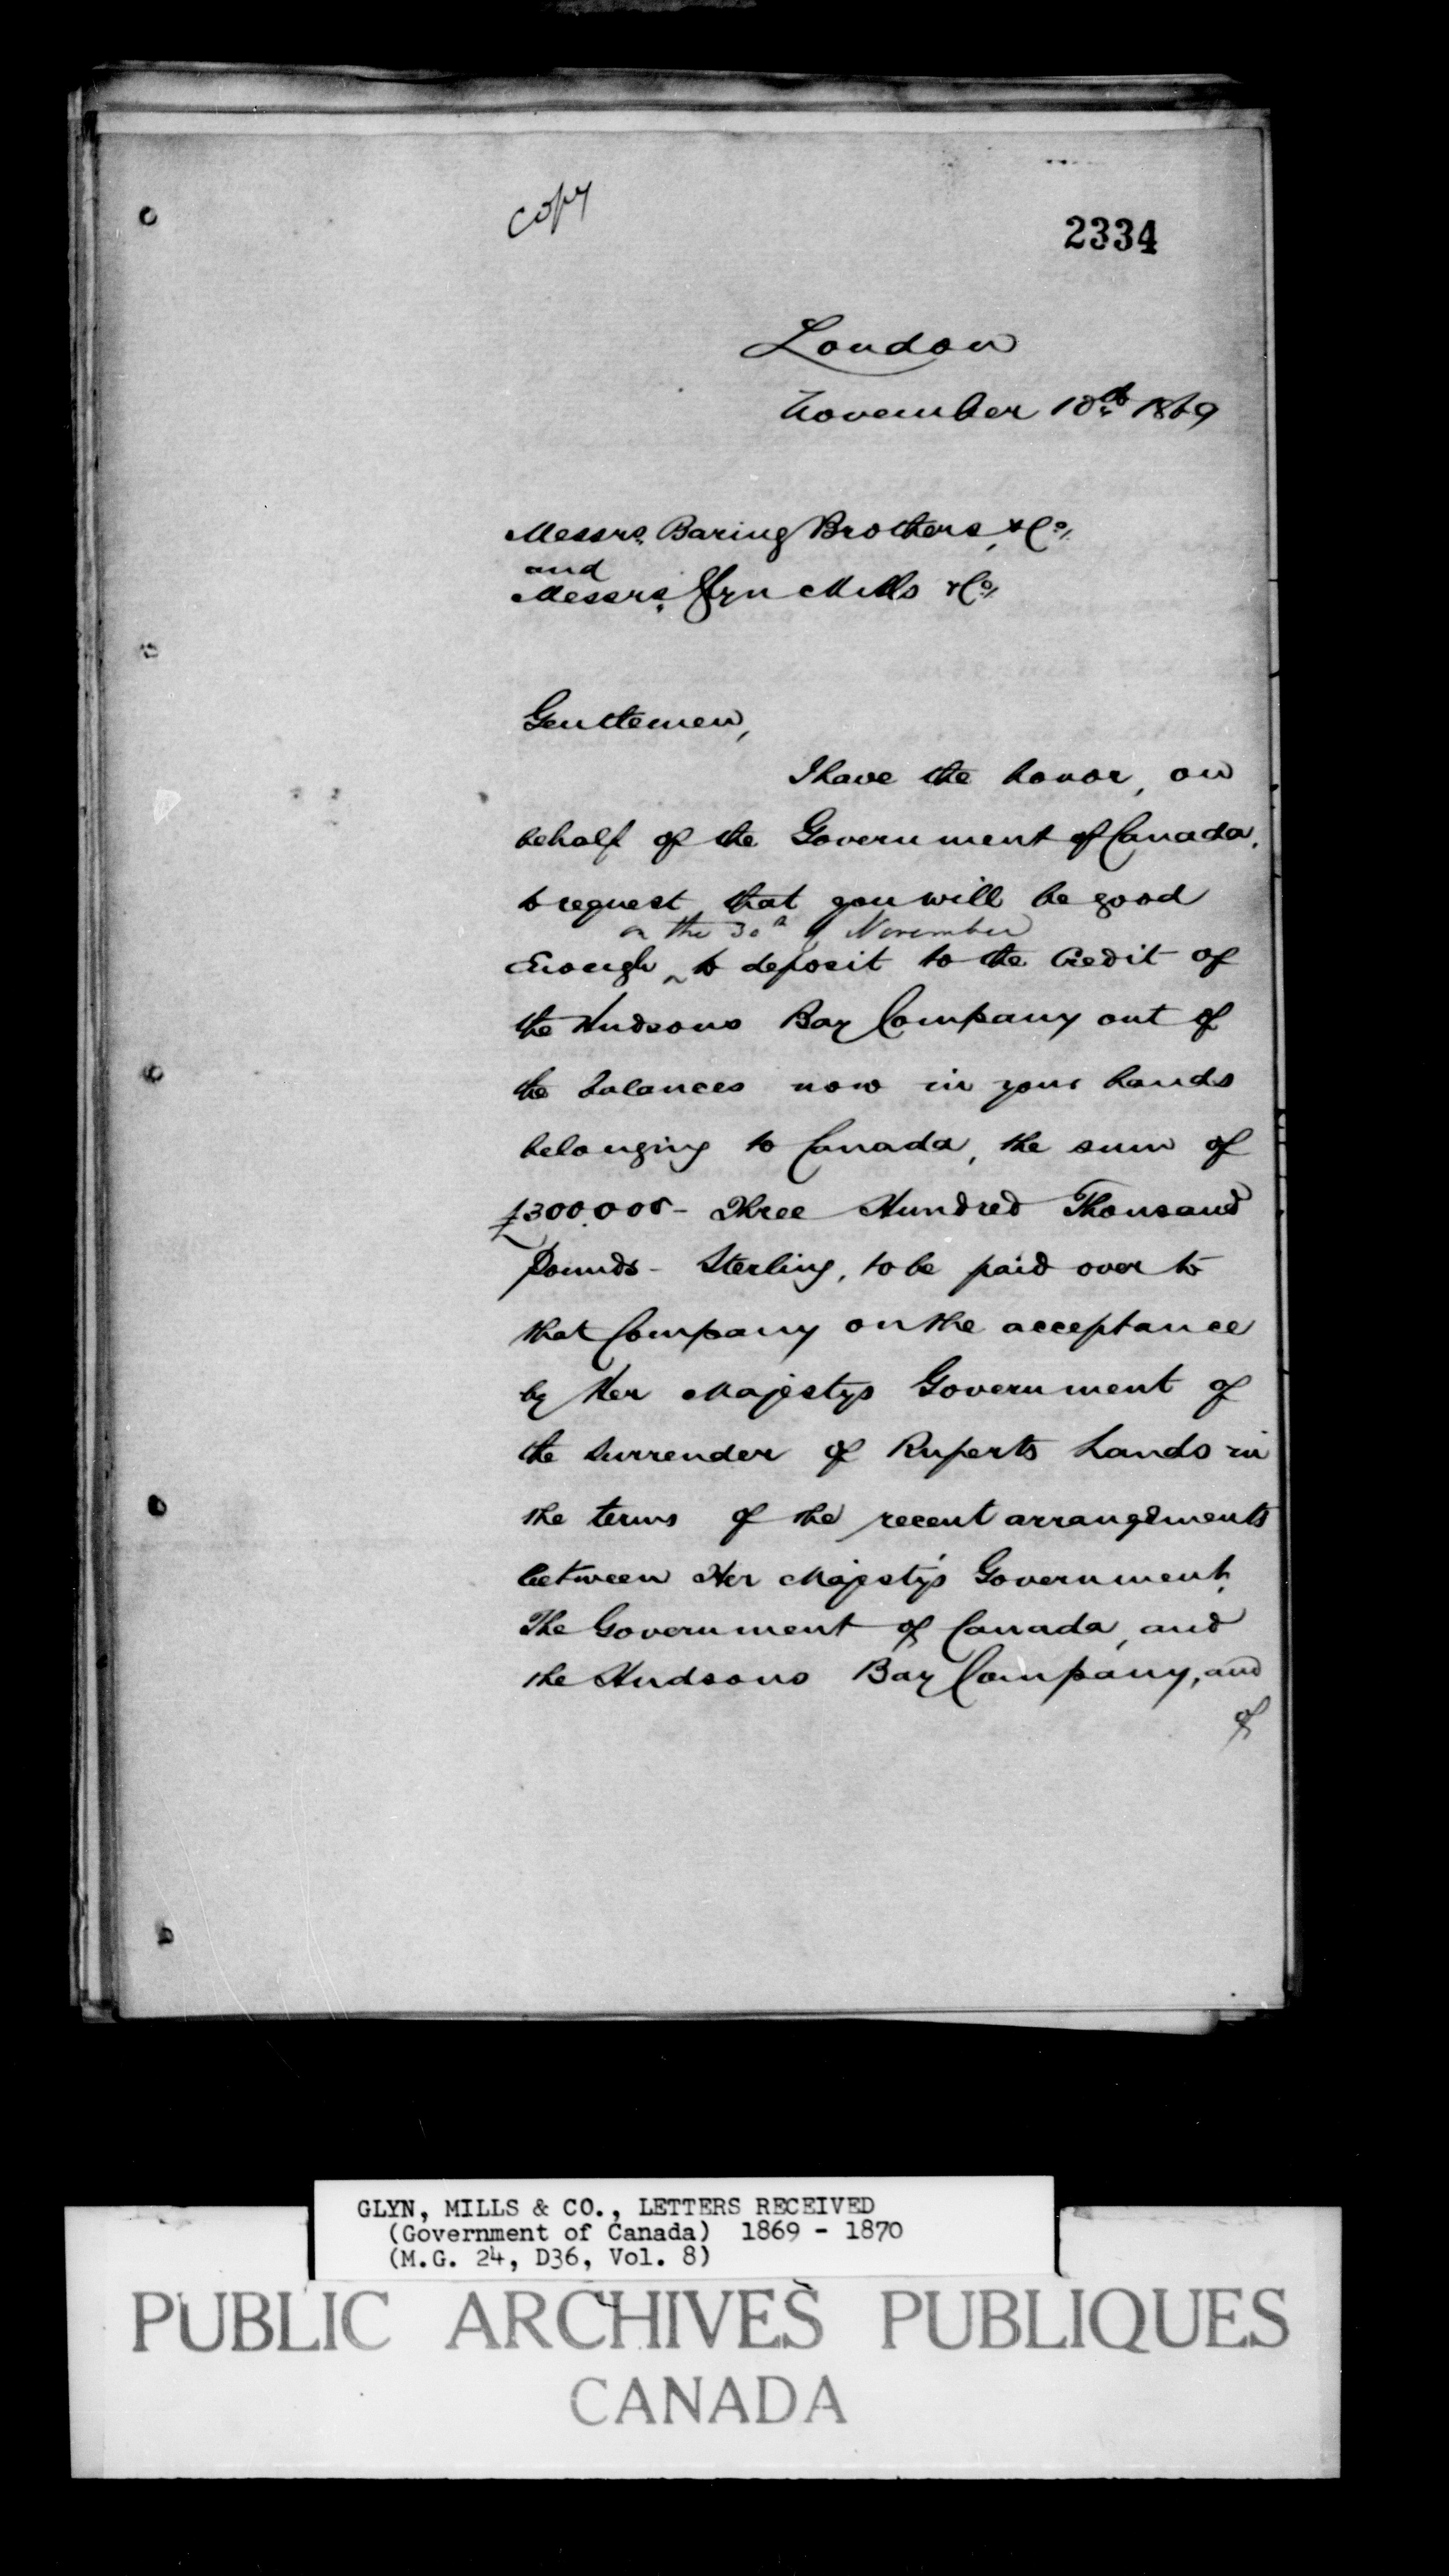 copy
2334
London
November 10th 1869
Messrs. Baring Brothers, & Co/.
and
Messrs. Glyn Mills & Co/.
Gentlemen,
I have the honor, on
behalf of the Government of Canada,
to request that you will be good
on the 30th of November
Enough ^ to deposit to the Credit of
the Hudsons Bay Company out of
the balances now in your hands
belonging to Canada, the sum of
£300.000 - Three Hundred Thousand
Pounds - Sterling, to be paid over to
that Company on the acceptance
by Her Majestys Government of
the Surrender of Ruperts Lands in
the terms of the recent arrangements
between Her Majesty's Government,
The Government of Canada, and
the Hudsons Bay Company, and
of
GLYN, MILLS & CO., LETTERS RECEIVED
(Government of Canada) 1869 - 1870
(M.G. 24, D36, Vol. 8)
PUBLIC ARCHIVES PUBLIQUES
CANADA